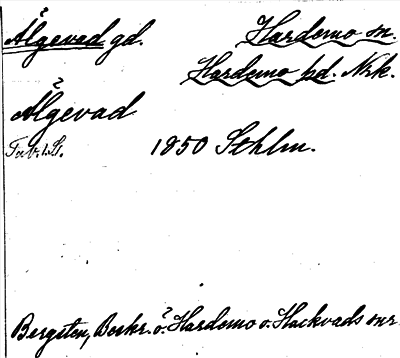 Älgevad gd. Hardemo sn.
Hardemo hd. Nrk.
Älgevad
1850 Sthlm.
Bergsten, Beskr. ö. Hardemo o. Hackvads snr